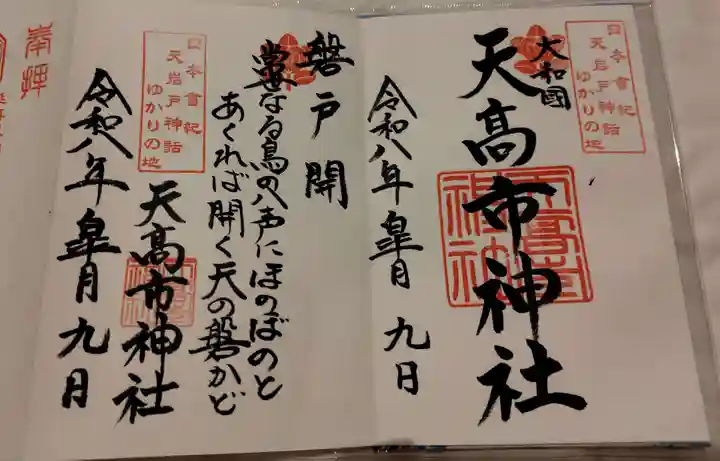 日本書紀
天岩戸神話
ゆかりの地
大和國
天高市神社
令和八年 皐月 九日
日本書紀
天岩戸神話
ゆかりの地
磐戸開
常世なる鳥の八声にほのぼのと
あくれば開く天の磐かど
天高市神社
令和八年 皐月 九日
奉拝